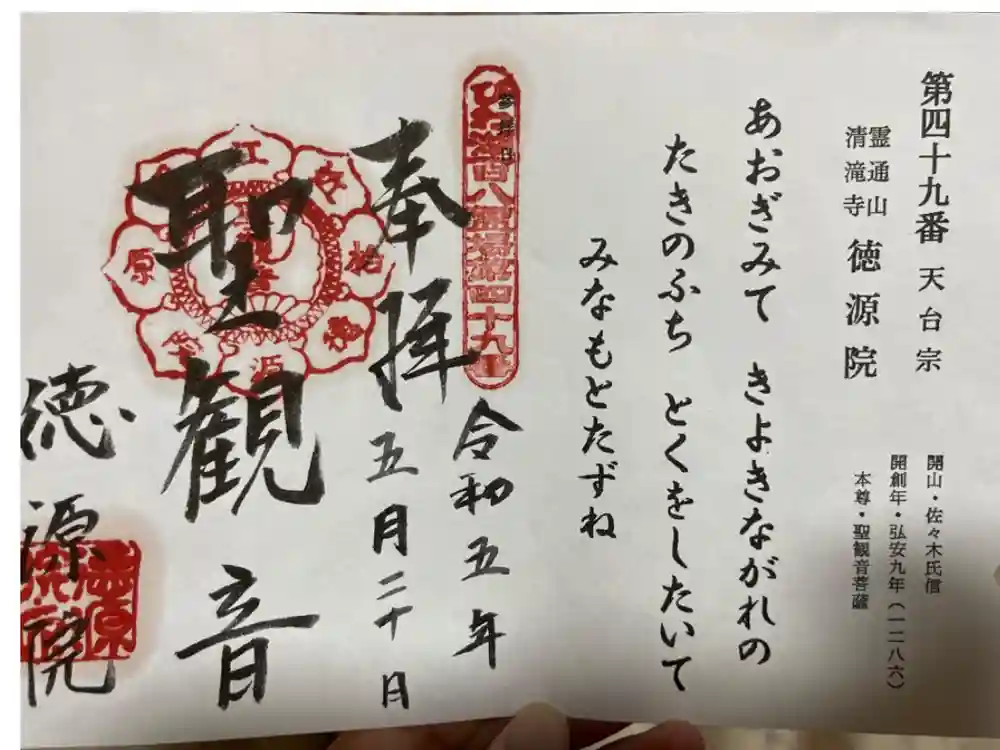 第四十九番 天台宗
霊通山
清滝寺 徳源院
開山・佐々木氏信
開創年・弘安九年(一二八六)
本尊・聖観音菩薩
あおぎみて きよきながれの
たきのふち とくをしたいて
みなもとたずね
参拝日
奉拝
令和五年
五月二十日
聖観音
徳源院